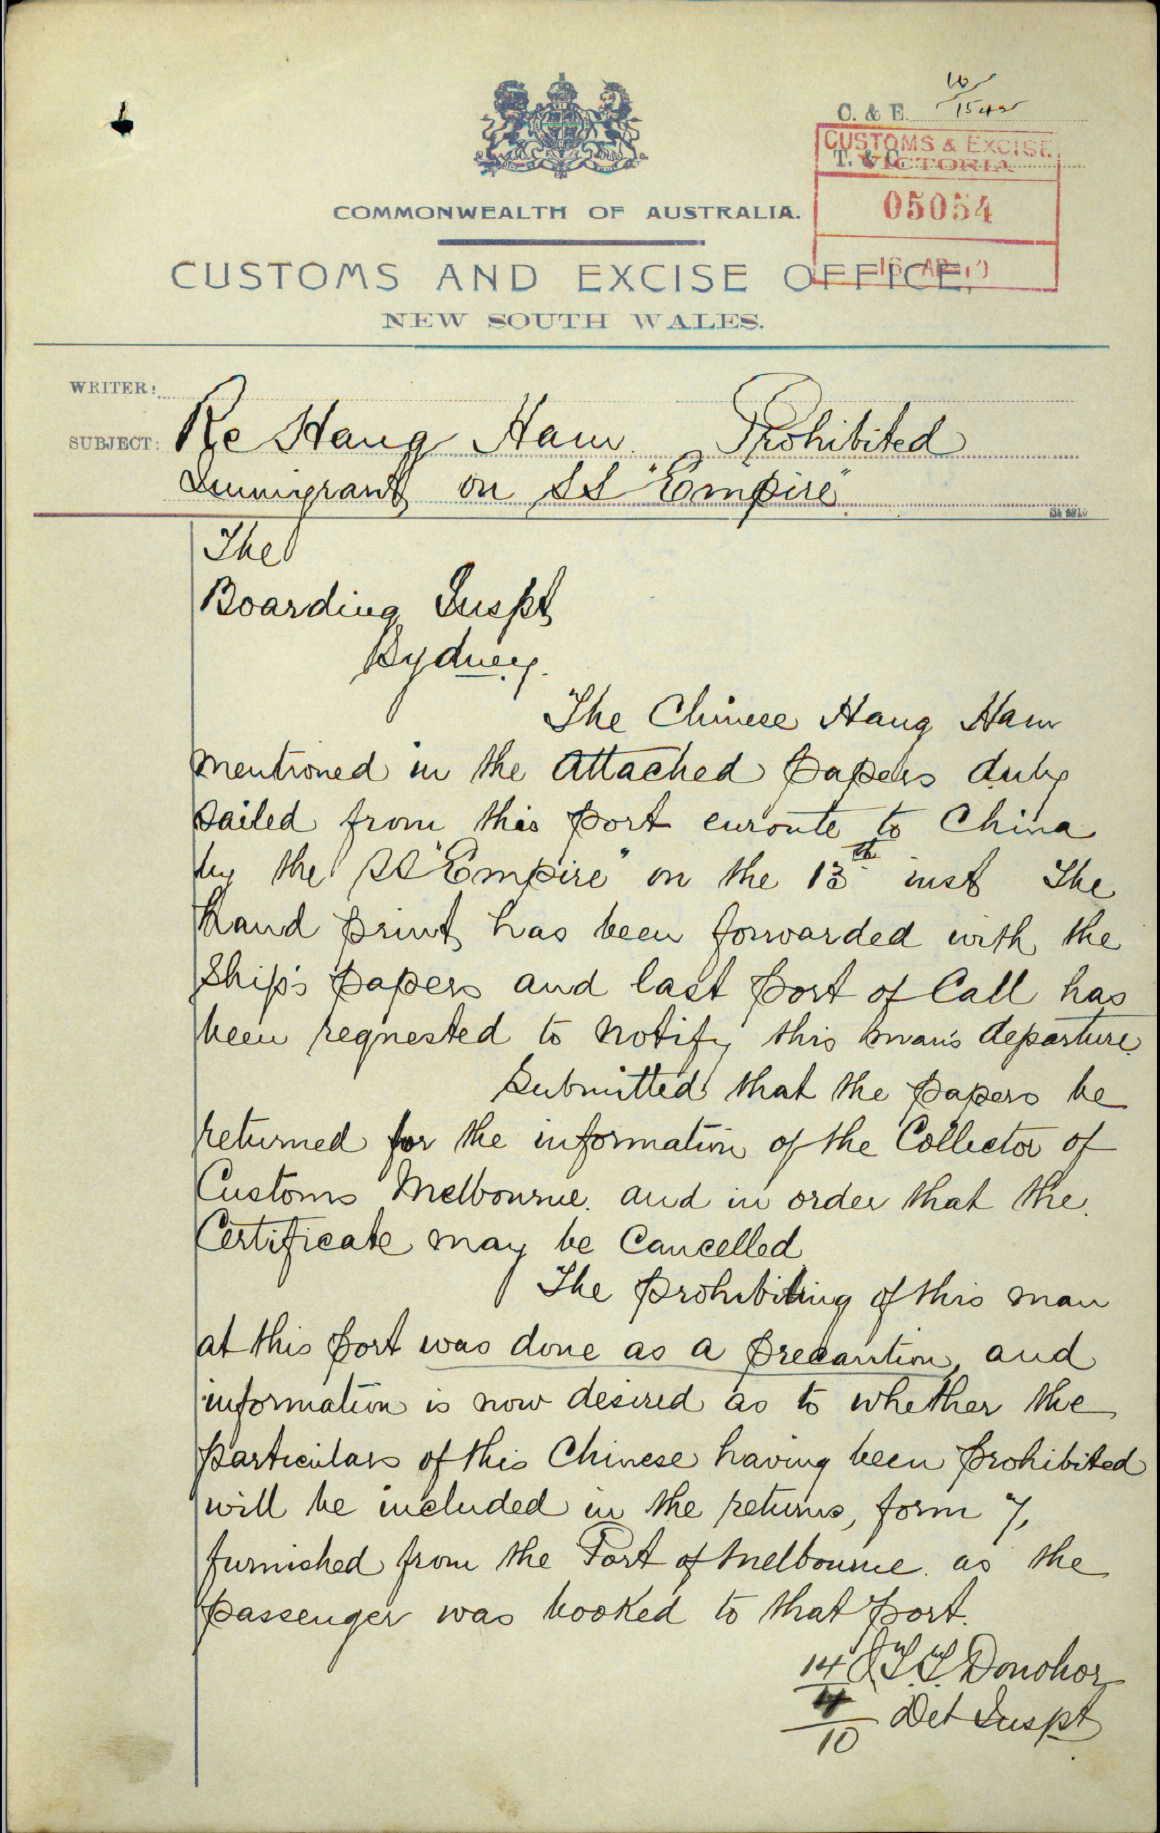 C. & E. 10/1542
CUSTOMS & EXCISE
T. & C.
VICTORIA
05054
COMMONWEALTH OF AUSTRALIA.
16 AP 10
CUSTOMS AND EXCISE OFFICE,
NEW SOUTH WALES.
WRITER:
SUBJECT: Re Hang Ham Prohibited
Immigrant on SS "Empire"
The
Boarding Inspt
Sydney.
The Chinese Hang Ham
mentioned in the attached papers duly
sailed from this port enroute to China
by the SS "Empire" on the 13th inst The
hand print has been forwarded with the
Ship's papers and last port of Call has
been requested to notify this man's departure.
Submitted that the papers be
returned for the information of the Collector of
Customs Melbourne. and in order that the
Certificate may be Cancelled
The prohibiting of this man
at this port was done as a precaution, and
information is now desired as to whether the
particulars of this Chinese having been prohibited
will be included in the returns, form 7,
furnished from the Port of Melbourne. as the
passenger was booked to that port.
14 J.T.T. Donohoe
4 Det Inspt
10